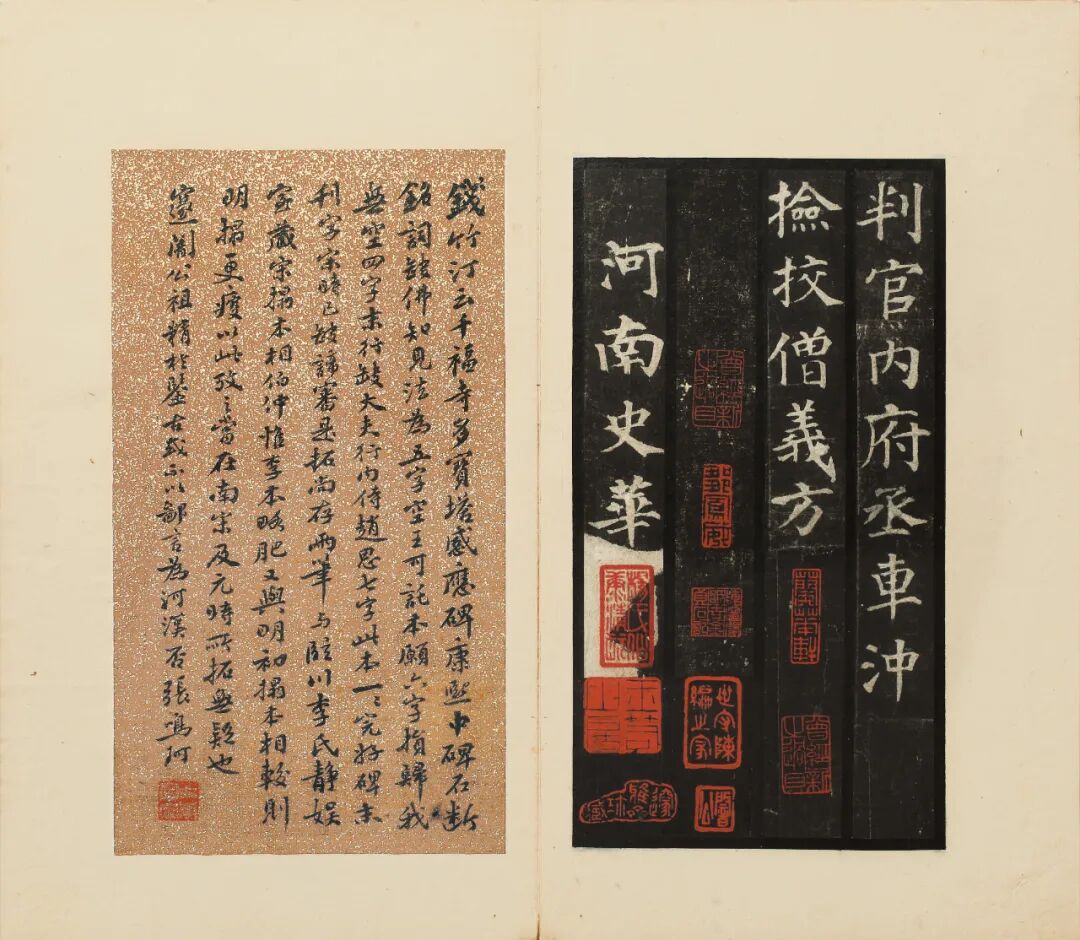 判官内府丞車冲
撿挍僧義方
河南史華
錢竹汀云千福寺多寶塔感應碑康熙中碑石斷
銘詞缺佛知見法為五字空王可託本願六字指歸我
無空四字末行缺大夫行内侍趙思七字此本一一完好碑末
刊字宋時已缺諦審是拓尚存兩筆与臨川李氏靜娱
室藏宋搨本相伯仲惟李本略肥又與明初搨本相較則
明搨更瘦以此攷之當在南宋及元時所拓無疑也
公祖精於鑒古或不以鄙言為河漢否張鳴珂